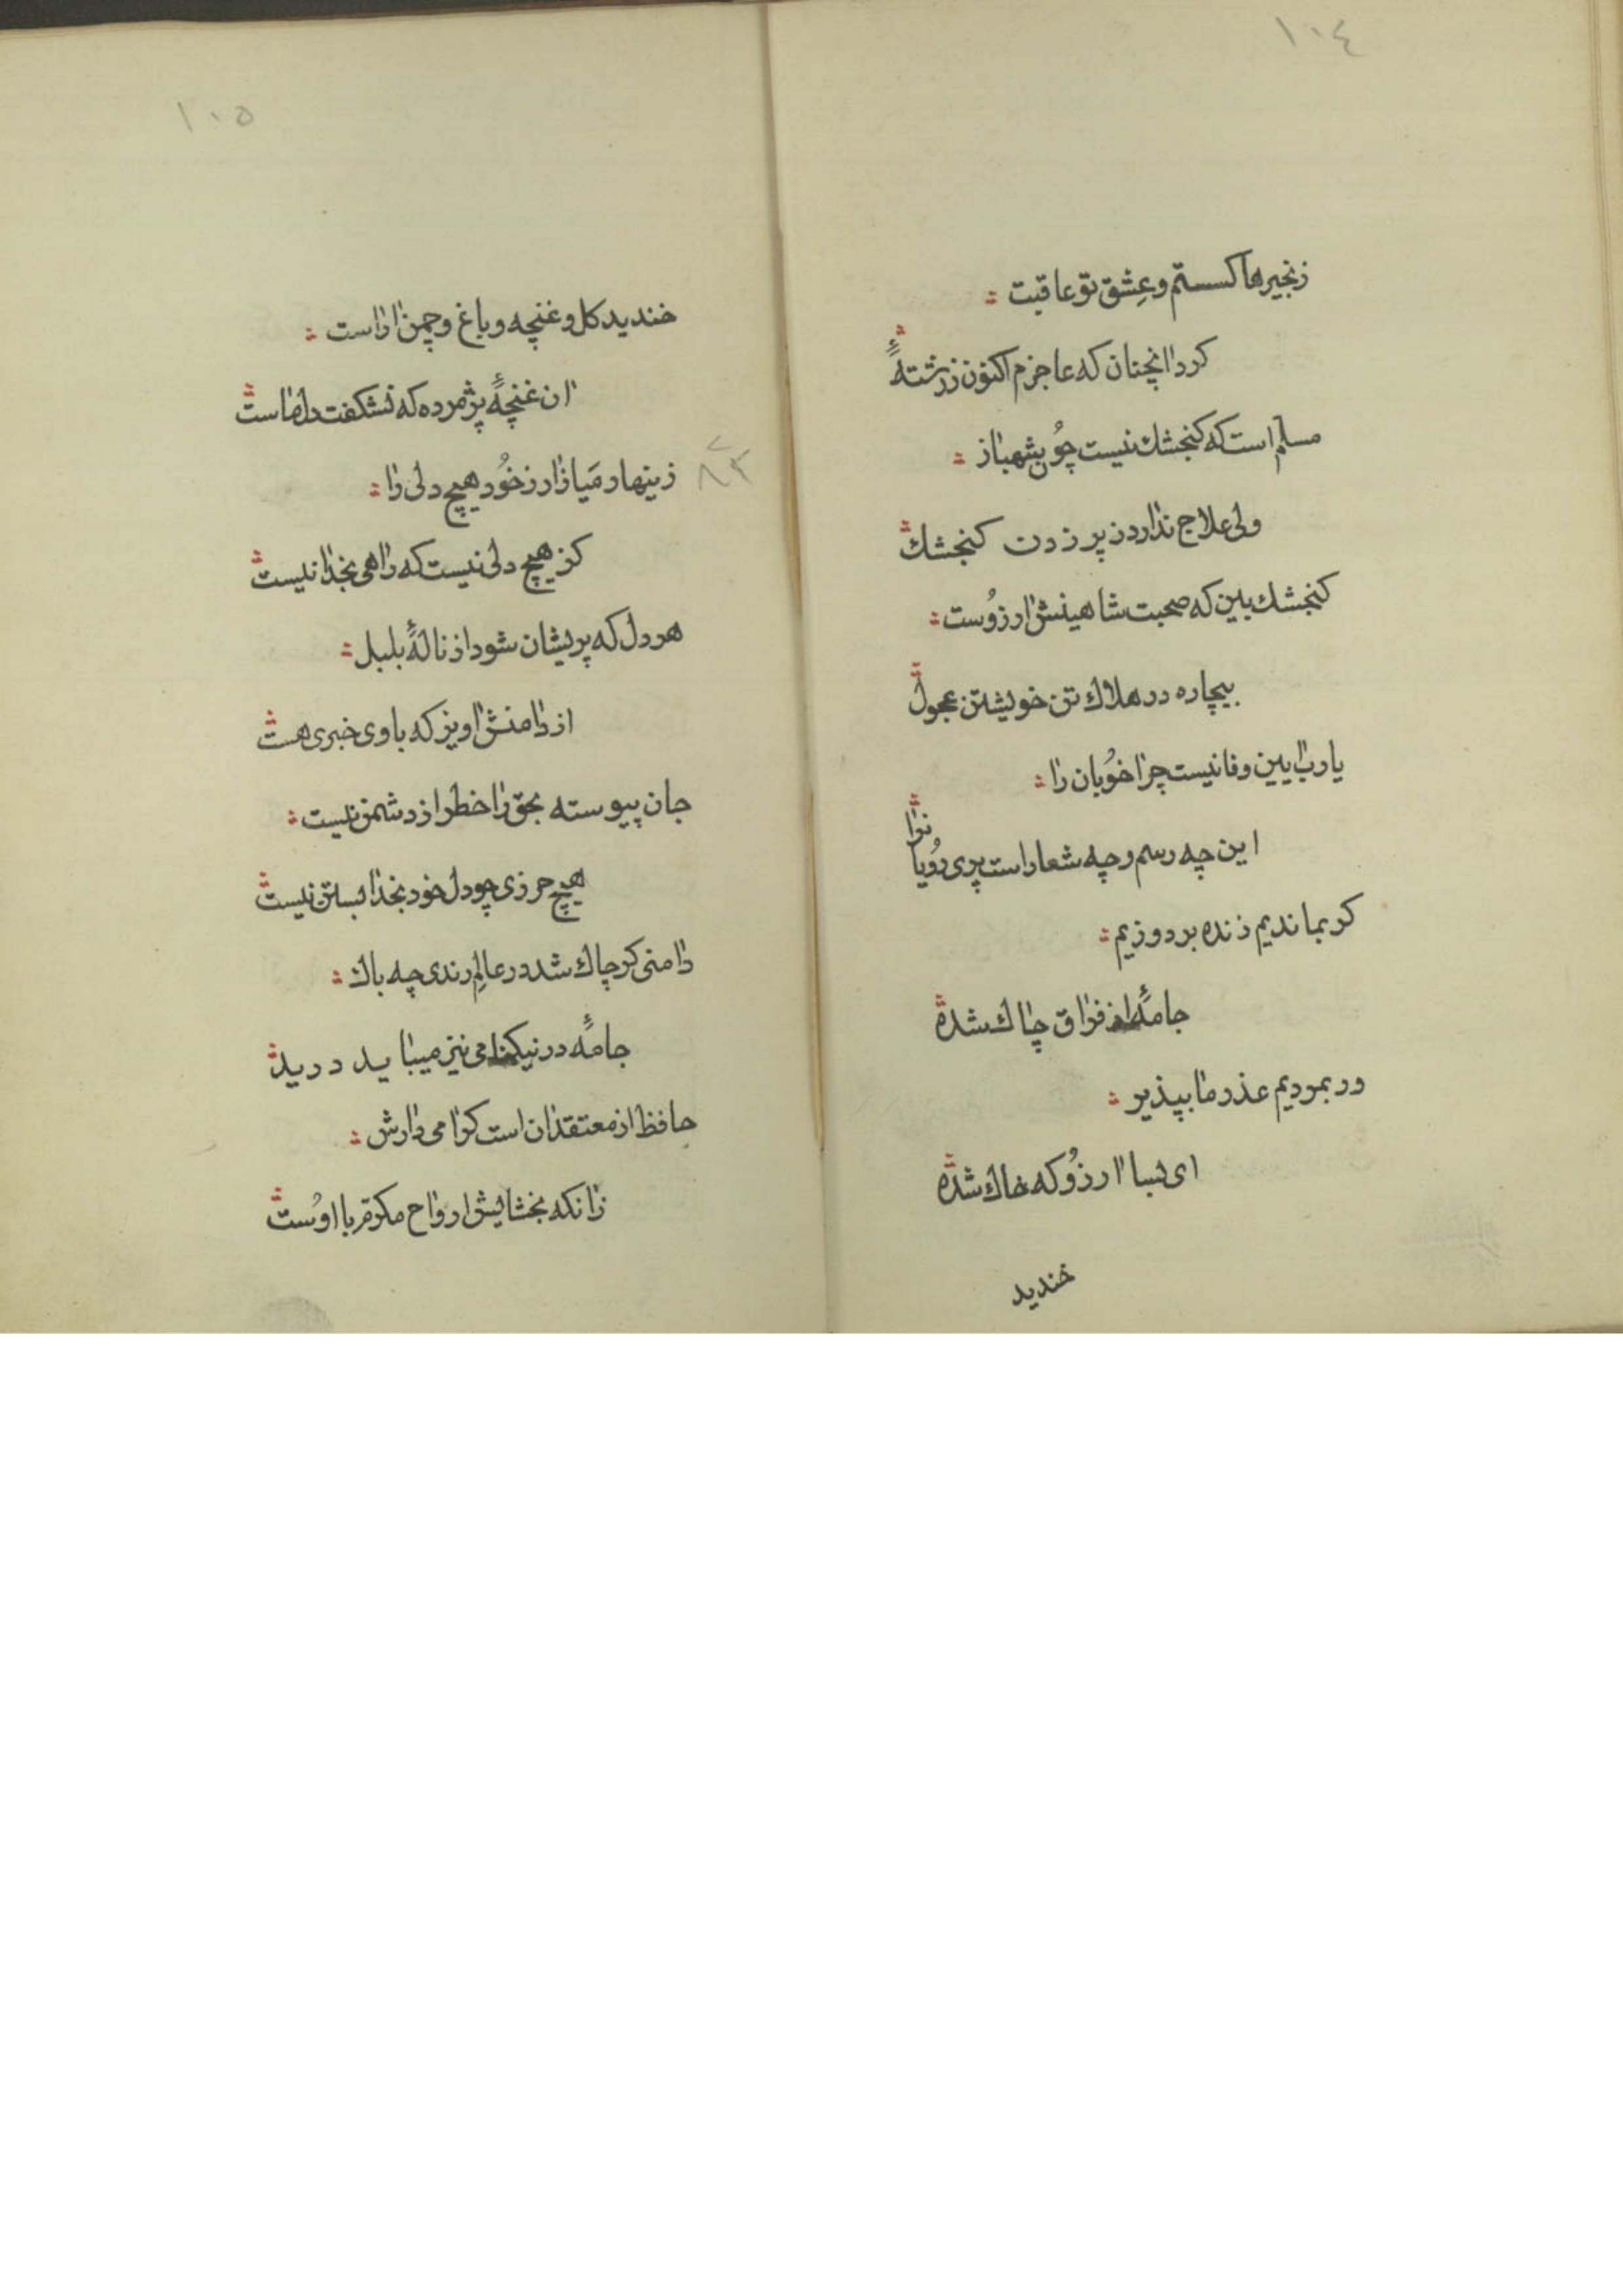 ١٠٤
زنجیرها کسستم و عِشق تو عاقبت
کرد انچنان که عاجزم اکنون ز رشتهٔ
مسلم است که کنجشك نیست چوُن شهباز
ولی علاج ندارد ز پر زدن کنجشك
کنجشك بین که صحبت شاهینش ارزوُست
بیچاره در هلاك تن خویشتن عجول
یارب ایین وفا نیست چرا خوُبان را
این چه رسم و چه شعار است پری روُیانرا
کر بماندیم زنده بردوزیم
جامهٔ از فراق چاك شده
ور بمردیم عذر ما بپذیر
ای بسا ارزوُ که خاك شده
خندید
١٠٥
خندید کل و غنچه و باغ و چمن اراست
ان غنچهٔ پژمرده که نشکفت دل ماست
زینهار مَیازار ز خوُد هیچ دلی را
٨٣
کز هیچ دلی نیست که راهی بخدا نیست
هر دل که پریشان شود از نالهٔ بلبل
از دامنش اویز که با وی خبری هست
جان پیوسته بحق را خطر از دشمن نیست
هیچ حرزی چو دل خود بخدا بستن نیست
دامنی کر چاك شد در عالمِ رندی چه باك
جامهٔ در نیکنامی نیز میباید درید
حافظ از معتقدان است کرامی دارش
زانکه بخشایش ارواح مکرم با اوُست